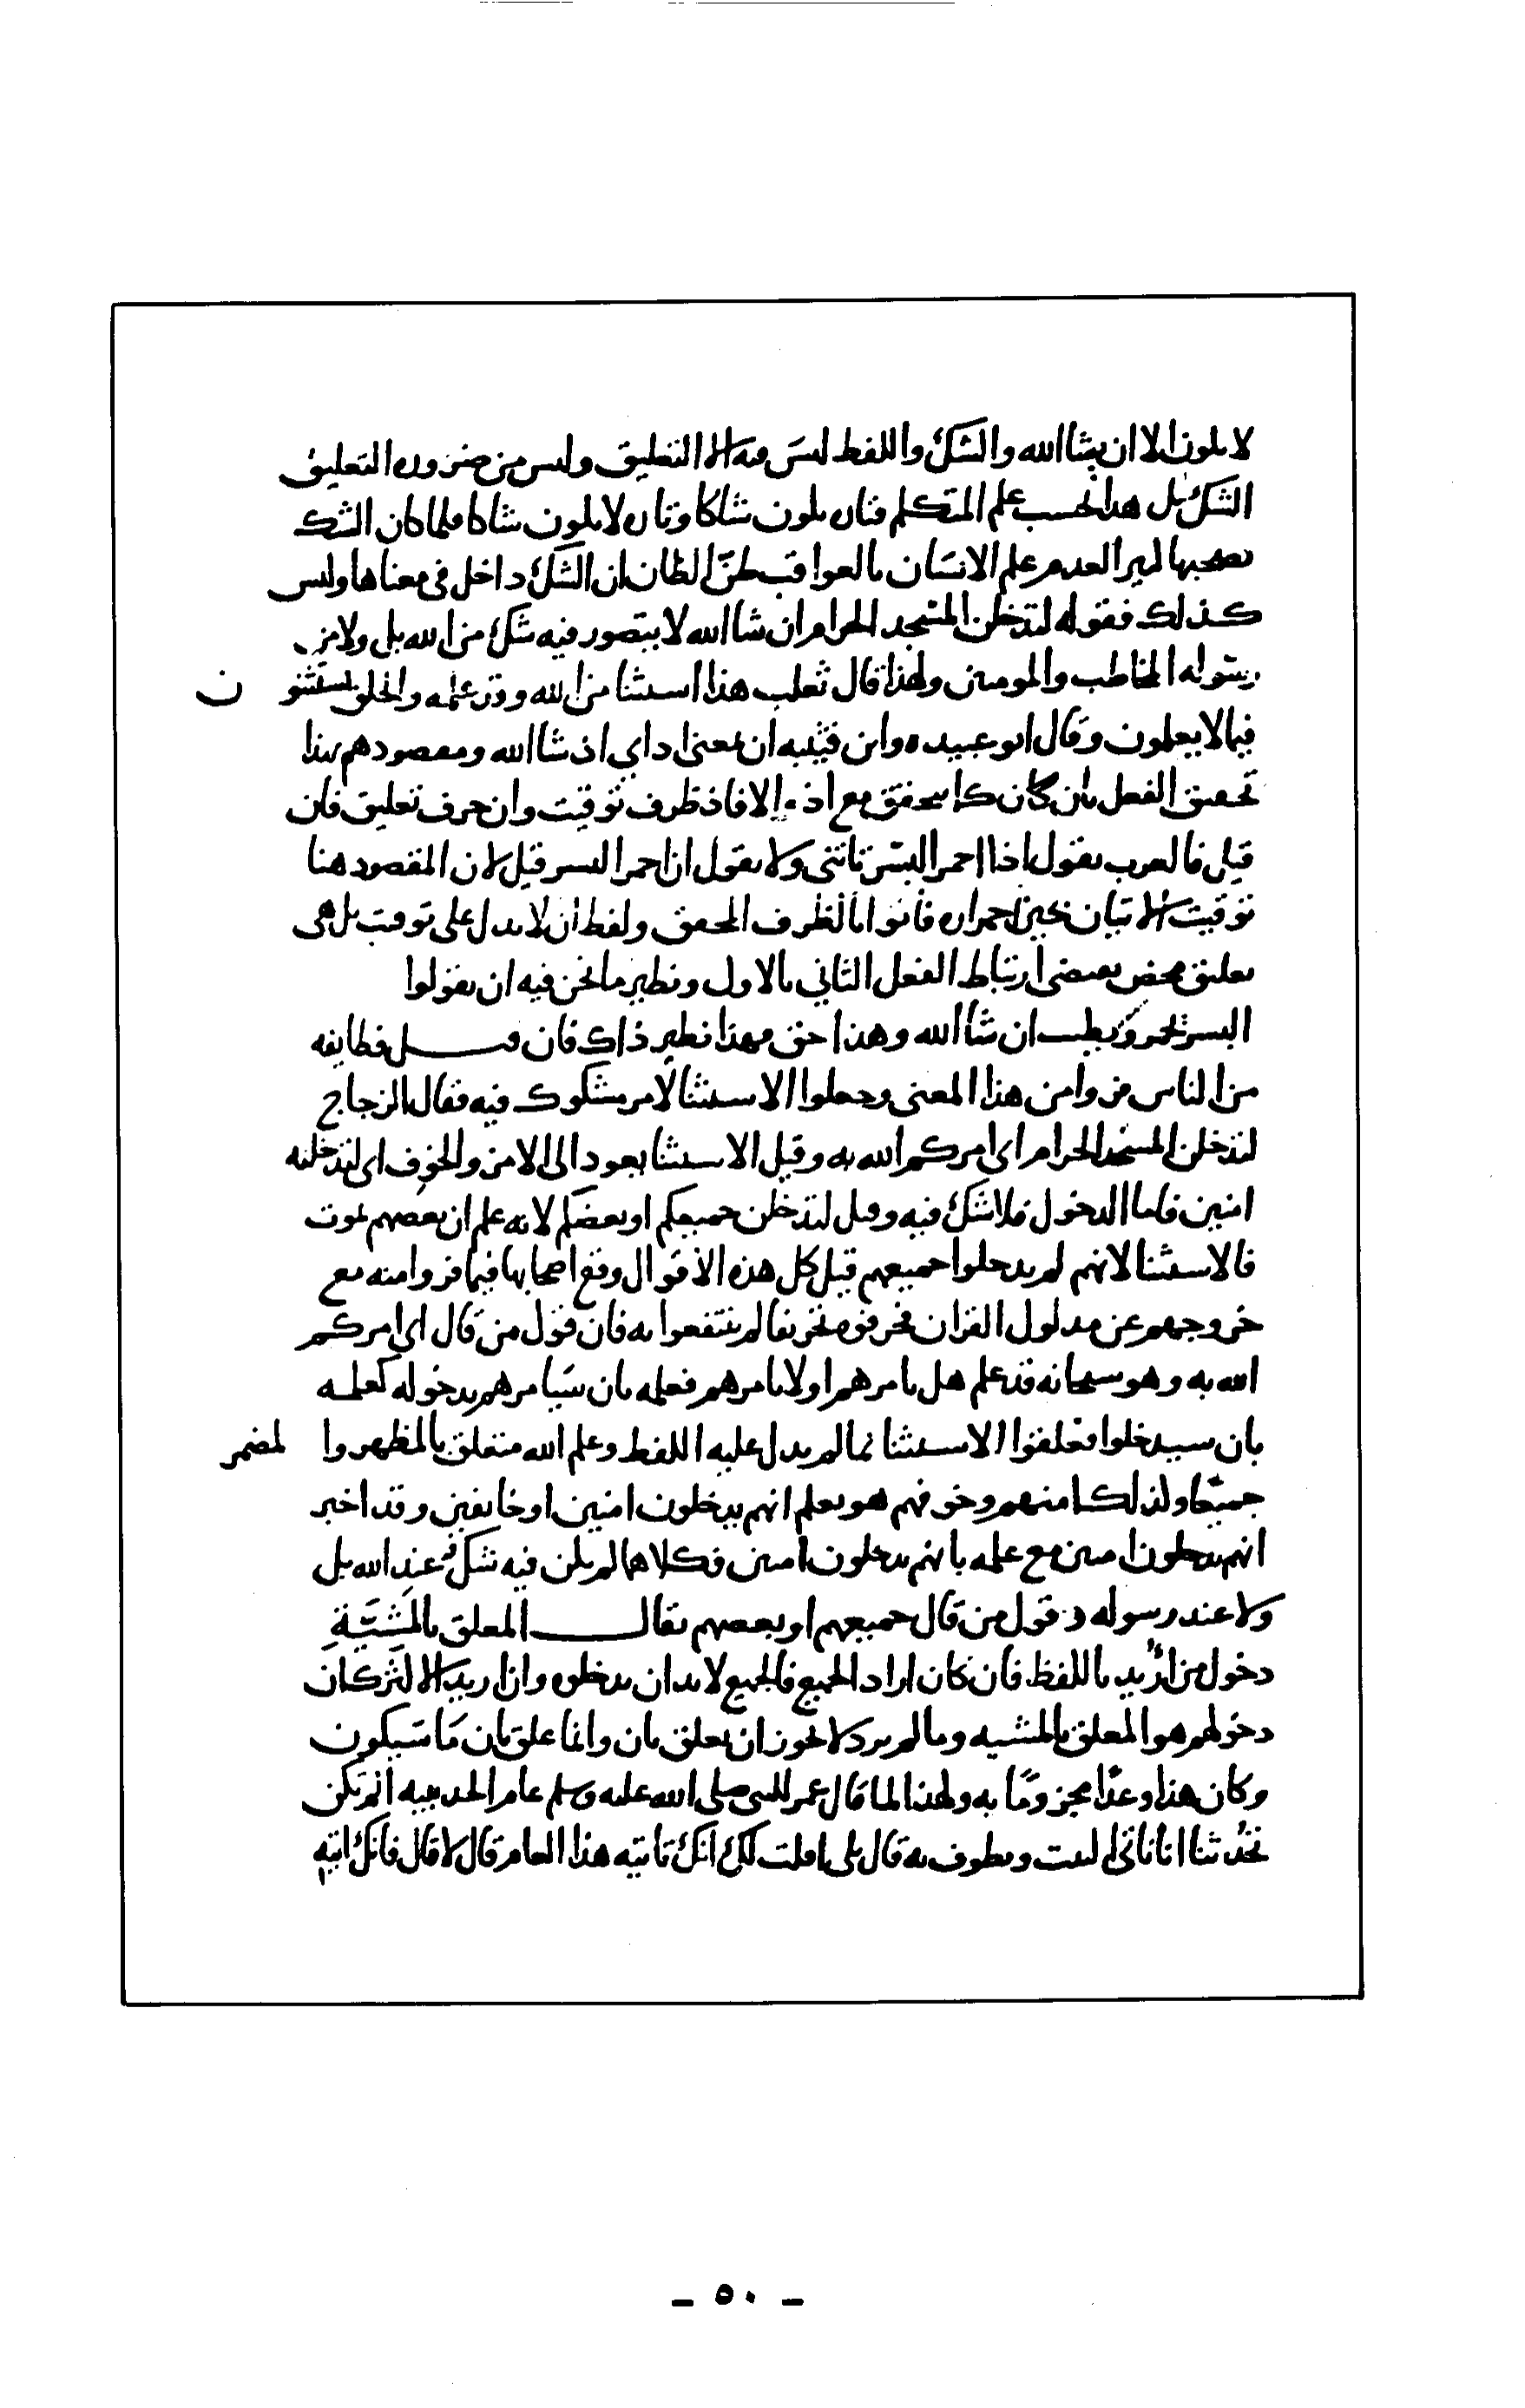 لا يكون الا ان يشا الله والشك واللفظ ليس فيه الا التعليق وليس من ضرورة التعليق
الشك بل هذا بحسب علم المتكلم فتارة يكون شاكا وتارة لا يكون شاكا فلما كان الشك
يصحبها لعدم علم الانسان بالعواقب ظن الظان ان الشك داخل في معناها وليس
كذلك فقوله لتدخلن المسجد الحرام ان شا الله لا يتصور فيه شك من الله بل ولا من
رسوله المخاطب والمومنين ولهذا قال ثعلب هذا استثنا من الله وقد علمه والخلق يستثنو ن
فيما لا يعلمون وقال ابو عبيده وابن قتيبه ان بمعنى اذ اي اذ شا الله ومقصودهم بهذا
تحقيق الفعل بان كان كما يتحقق مع اذ والا فاذ ظرف توقيت وان حرف تعليق فان
قيل فالعرب يقول اذا احمر البسر تاتني ولا يقول ان احمر البسر قيل لان المقصود هنا
توقيت الاتيان بحين احمراره فاتوا بالظرف المحقق ولفظ ان لا يدل على توقيت بل هى
تعليق محض يقتضى ارتباط الفعل الثاني بالاول ونظير ما نحن فيه ان يقولوا
البسر يحمر ويطيب ان شا الله وهذا حق فهذا نظير ذاك فان قيل فطايفه
من الناس فروا من هذا المعنى وجعلوا الاستثنا لامر مشكوك فيه فقال الزجاج
لتدخلن المسجد الحرام اى امركم الله به وقيل الاستثنا يعود الى الامن والخوف اى لتدخلنه
امنين فاما الدخول فلا شك فيه وقيل لتدخلن جميعكم او بعضكم لانه علم ان بعضهم يموت
فالاستثنا لانهم لم يدخلوا جميعهم قيل كل هذه الاقوال وقع اصحابها فيما فروا منه مع
خروجهم عن مدلول القران فحرفوه تحريفا لم ينتفعوا به فان قول من قال اى امركم
الله به وهو سبحانه قد علم هل يامرهم او لا يامرهم فعلمه بان سيامرهم بدخوله كعلمه
بان سيدخلوا فعلقوا الاستثنا بما لم يدل عليه اللفظ وعلم الله متعلق بالمظهر وا لمضمر
جميعا ولذلك امنهم وخوفهم هو يعلم انهم يدخلون امنين او خايفين وقد اخبر
انهم يدخلون امنين مع علمه بانهم يدخلون امنين فكلاهما لم يكن فيه شك عند الله بل
ولا عند رسوله و قول من قال جميعهم او بعضهم يقال المعلق بالمشيّة
دخول من اريد باللفظ فان كان اراد الجميع فالجميع لابد ان يدخلوه وان اريد الاكثر كان
دخولهم هو المعلق بالمشيه وما لم يرد لا يجوز ان يعلق بان وانما علق بان ما سيكون
وكان هذا وعدا مجزوما به ولهذا لما قال عمر للنبى صلى الله عليه وسلم عام الحديبيه الم تكن
تحدثنا انا ناتي البيت ونطوف به قال بلى اقلت لك انك تاتيه هذا العام قال لا قال فانك اتيه
- ٥٠ -